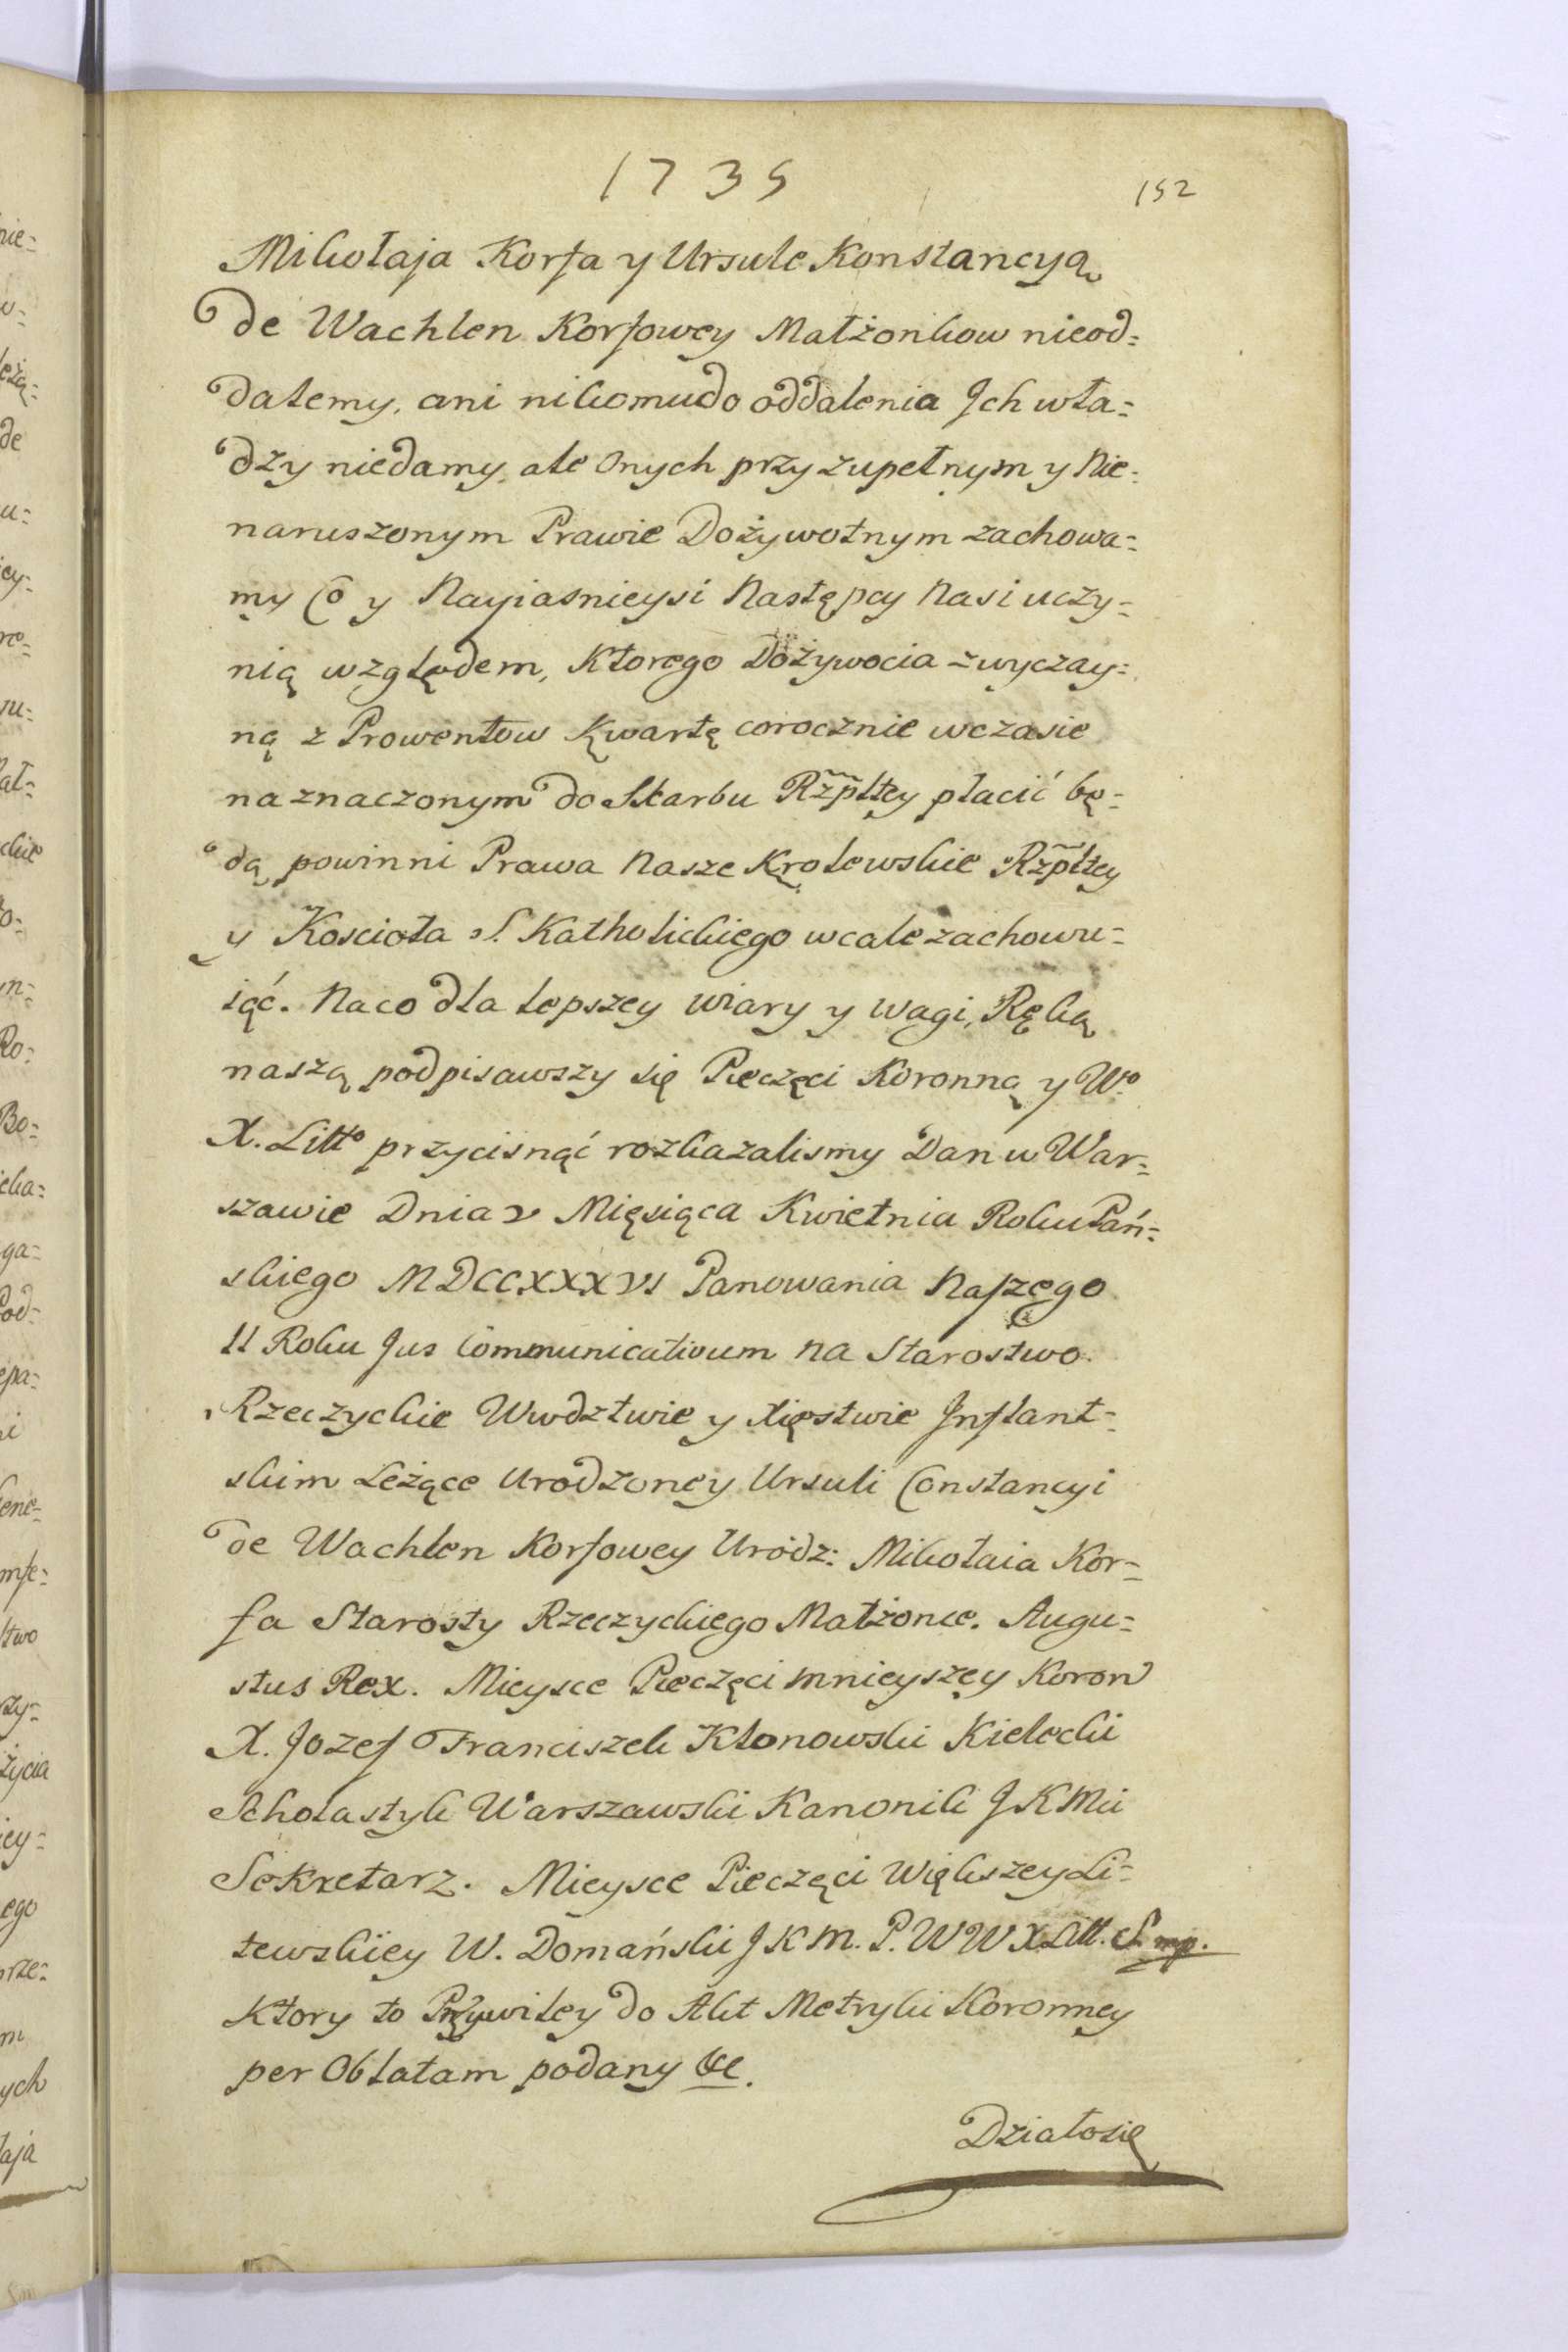 1735
152
Mikołaja Korfa y Ursule Konstancyą
de Wachlen Korfowey Małżonkow nieod=
dalemy, ani nikomu do oddalenia Jch wła=
dzy niedamy, ale Onych przy zupełnym y Nie=
naruszonym Prawie Dożywotnym zachowa=
my Co y Nayiasnieysi Następcy Nasi uczy=
nią względem, Ktorego Dożywocia zwyczay=
ną z Prowentow Kwartę corocznie wczasie
naznaczonym do Skarbu Rzpltey płacić bę=
dą powinni Prawa Nasze Krolewskie Rzpltey
y Koscioła S. Katholickiego wcale zachowu=
iąć. Naco dla lepszey wiary y wagi, Ręką
naszą podpisawszy się Pieczęci Koronną y Wo
X. Litto przycisnąć rozkazalismy Dan w War=
szawie Dnia v Mięsiąca Kwietnia Roku Pań=
skiego MDCCXXXVI Panowania Naszego
II Roku Jus Communicativum na Starostwo
Rzeczyckie Wwdztwie y Xięstwie Jnflant=
skim Leżące Urodzoney Ursuli Constancyi
de Wachlen Korfowey Urodz: Mikołaia Kor=
fa Starosty Rzeczyckiego Małżonce. Augu=
stus Rex. Mieysce Pieczęci mnieyszey Koron
X. Jozef Franciszek Kłonowski Kielecki
Scholastyk Warszawski Kanonik JKMci
Sekretarz. Mieysce Pieczęci Większey Li=
tewskiey W. Domański JKM. P. WWXLitt. S. mp.
Ktory to Przywiley do Akt Metryki Koronney
per Oblatam podany &c.
Działosię